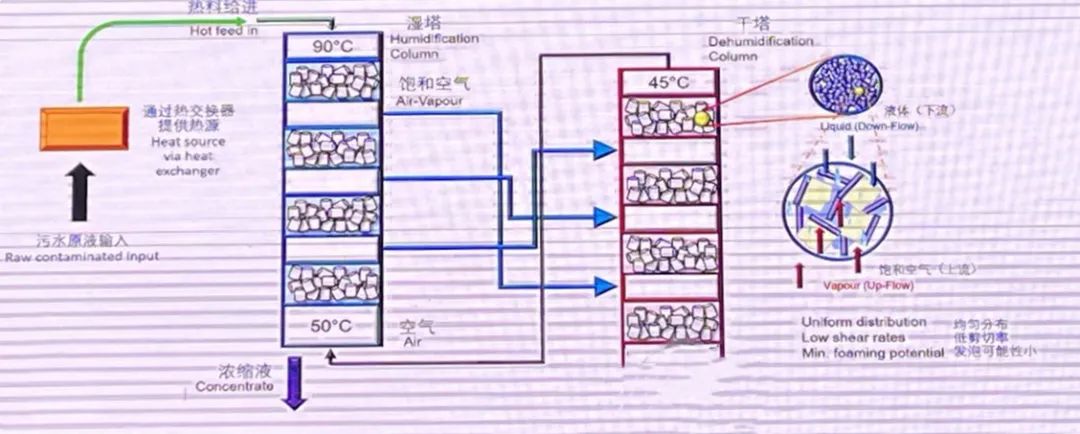 热料给进
Hot feed in
通过热交换器
提供热源
Heat source
via heat
exchanger
污水原液输入
Raw contaminated input
90°C
湿塔
Humidification
Column
饱和空气
Air-Vapour
50°C
空气
Air
浓缩液
Concentrate
干塔
Dehumidification
Column
45°C
液体（下流）
Liquid (Down-Flow)
饱和空气（上流）
Vapour (Up-Flow)
Uniform distribution 均匀分布
Low shear rates 低剪切率
Min. foaming potential 发泡可能性小